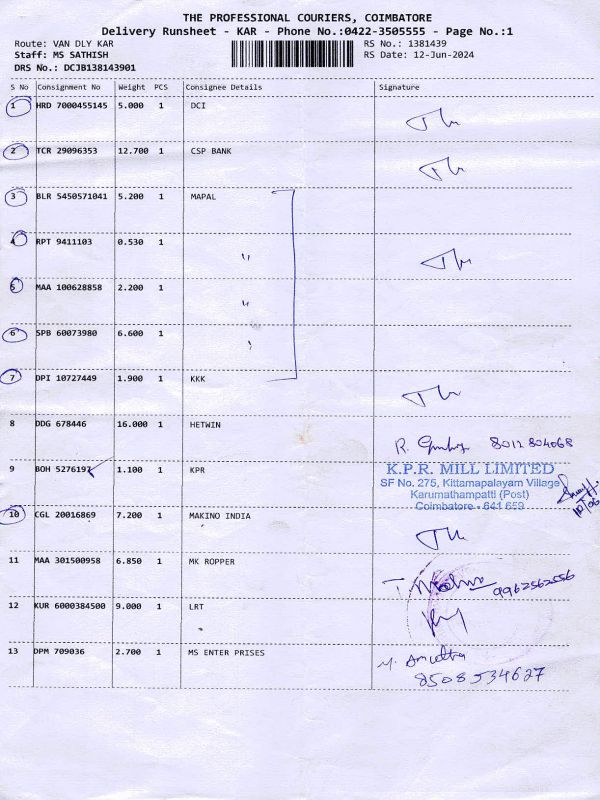 THE PROFESSIONAL COURIERS, COIMBATORE
Delivery Runsheet - KAR - Phone No.:0422-3505555 - Page No.:1
Route: VAN DLY KAR
RS No.: 1381439
Staff: MS SATHISH
RS Date: 12-Jun-2024
DRS No.: DCJB138143901
S No Consignment No Weight PCS Consignee Details Signature
1 HRD 7000455145 5.000 1 DCI
2 TCR 29096353 12.700 1 CSP BANK
3 BLR 5450571041 5.200 1 MAPAL
4 RPT 9411103 0.530 1 "
5 MAA 100628858 2.200 1 "
6 SPB 60073980 6.600 1
7 DPI 10727449 1.900 1 KKK
8 DDG 678446 16.000 1 HETWIN
R. 8012804068
9 BOH 5276197 1.100 1 KPR
K.P.R. MILL LIMITED
SF No. 275, Kittamapalayam Village
Karumathampatti (Post)
Coimbatore - 641 659
10 CGL 20016869 7.200 1 MAKINO INDIA
11 MAA 301500958 6.850 1 MK ROPPER
9962562556
12 KUR 6000384500 9.000 1 LRT
13 DPM 709036 2.700 1 MS ENTER PRISES
8508534627